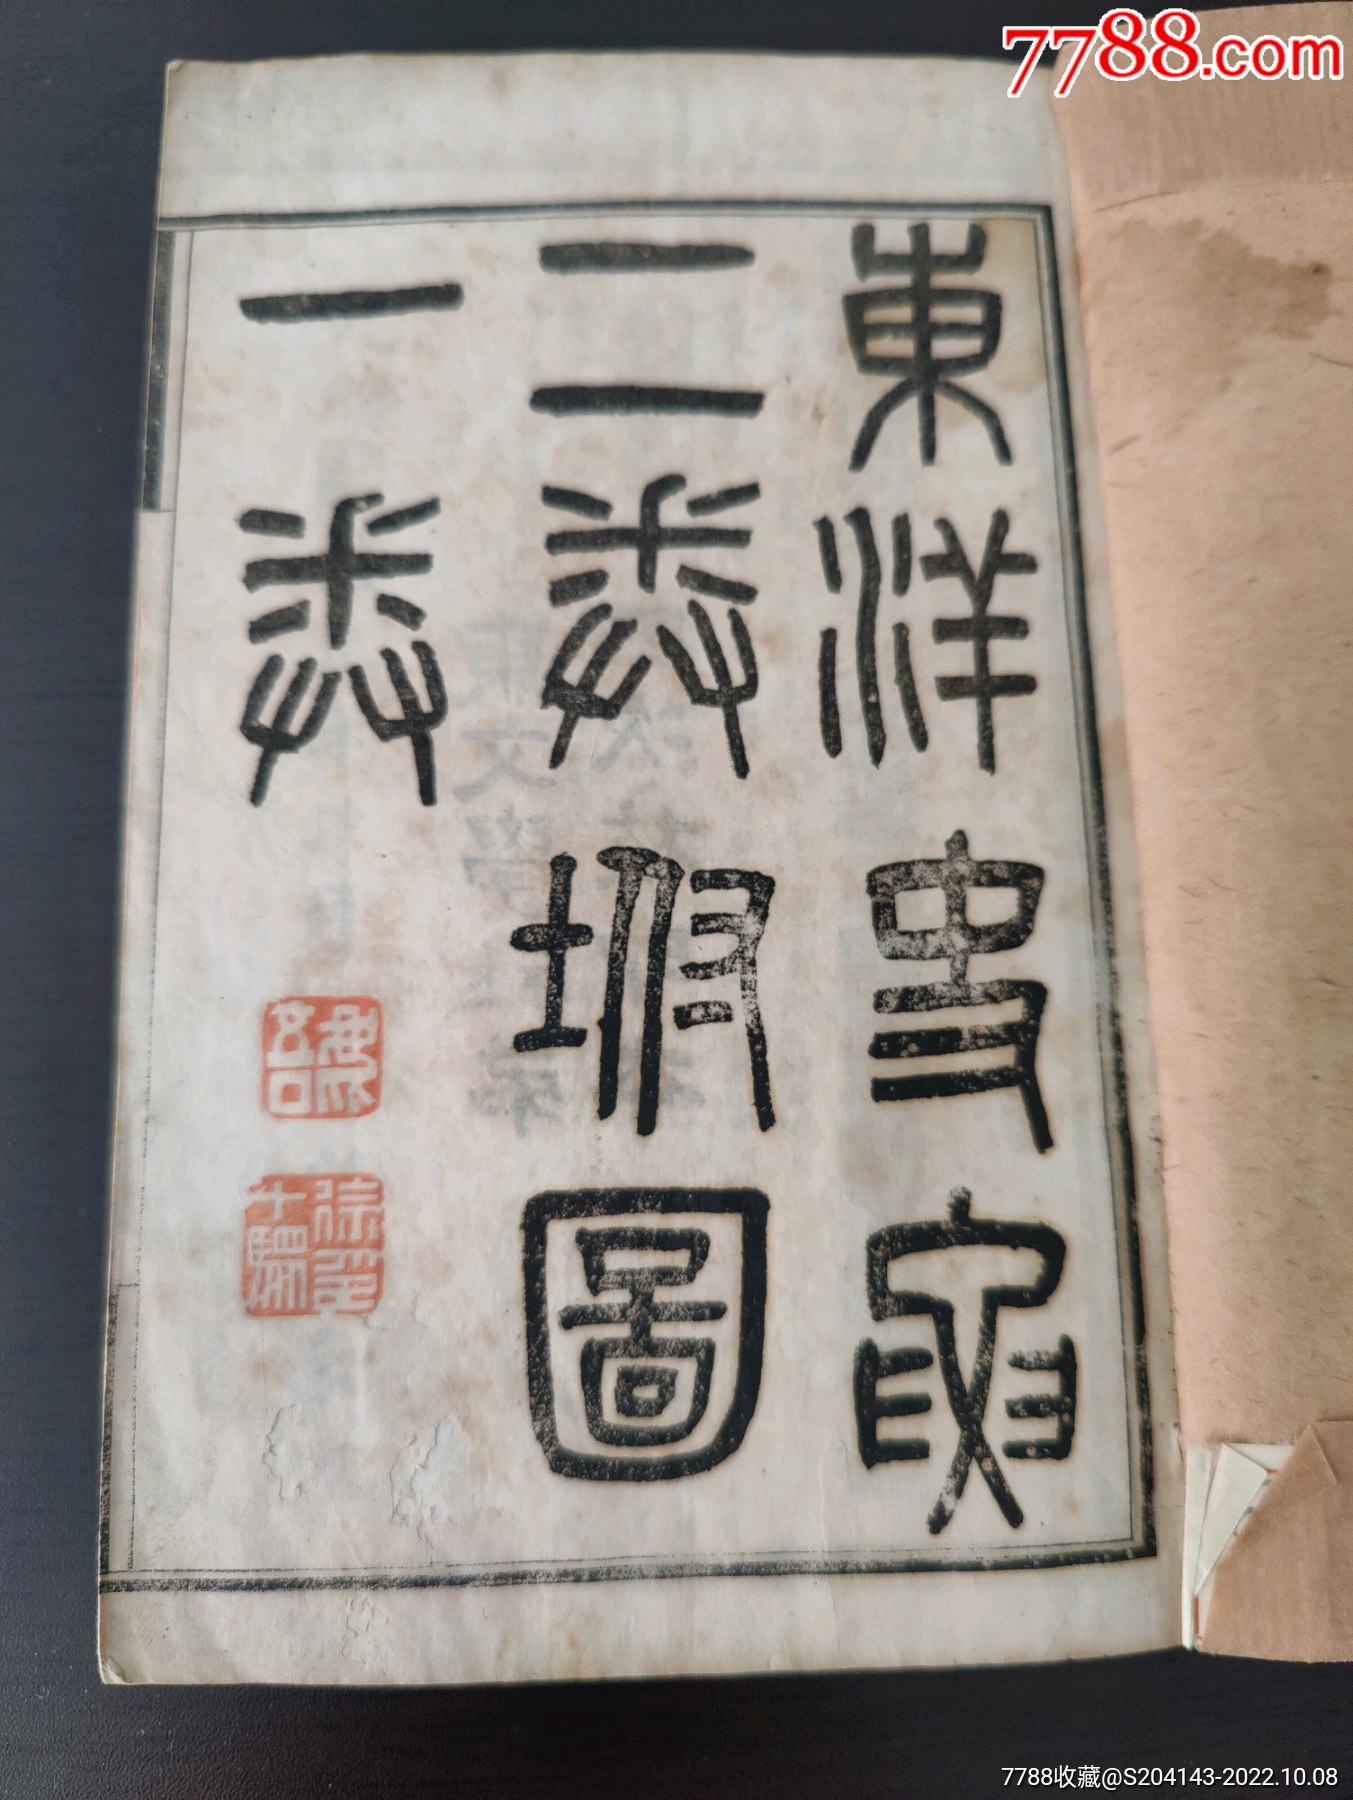 7788.com
東洋史要
二卷坿圖
一卷
7788收藏@S204143-2022.10.08